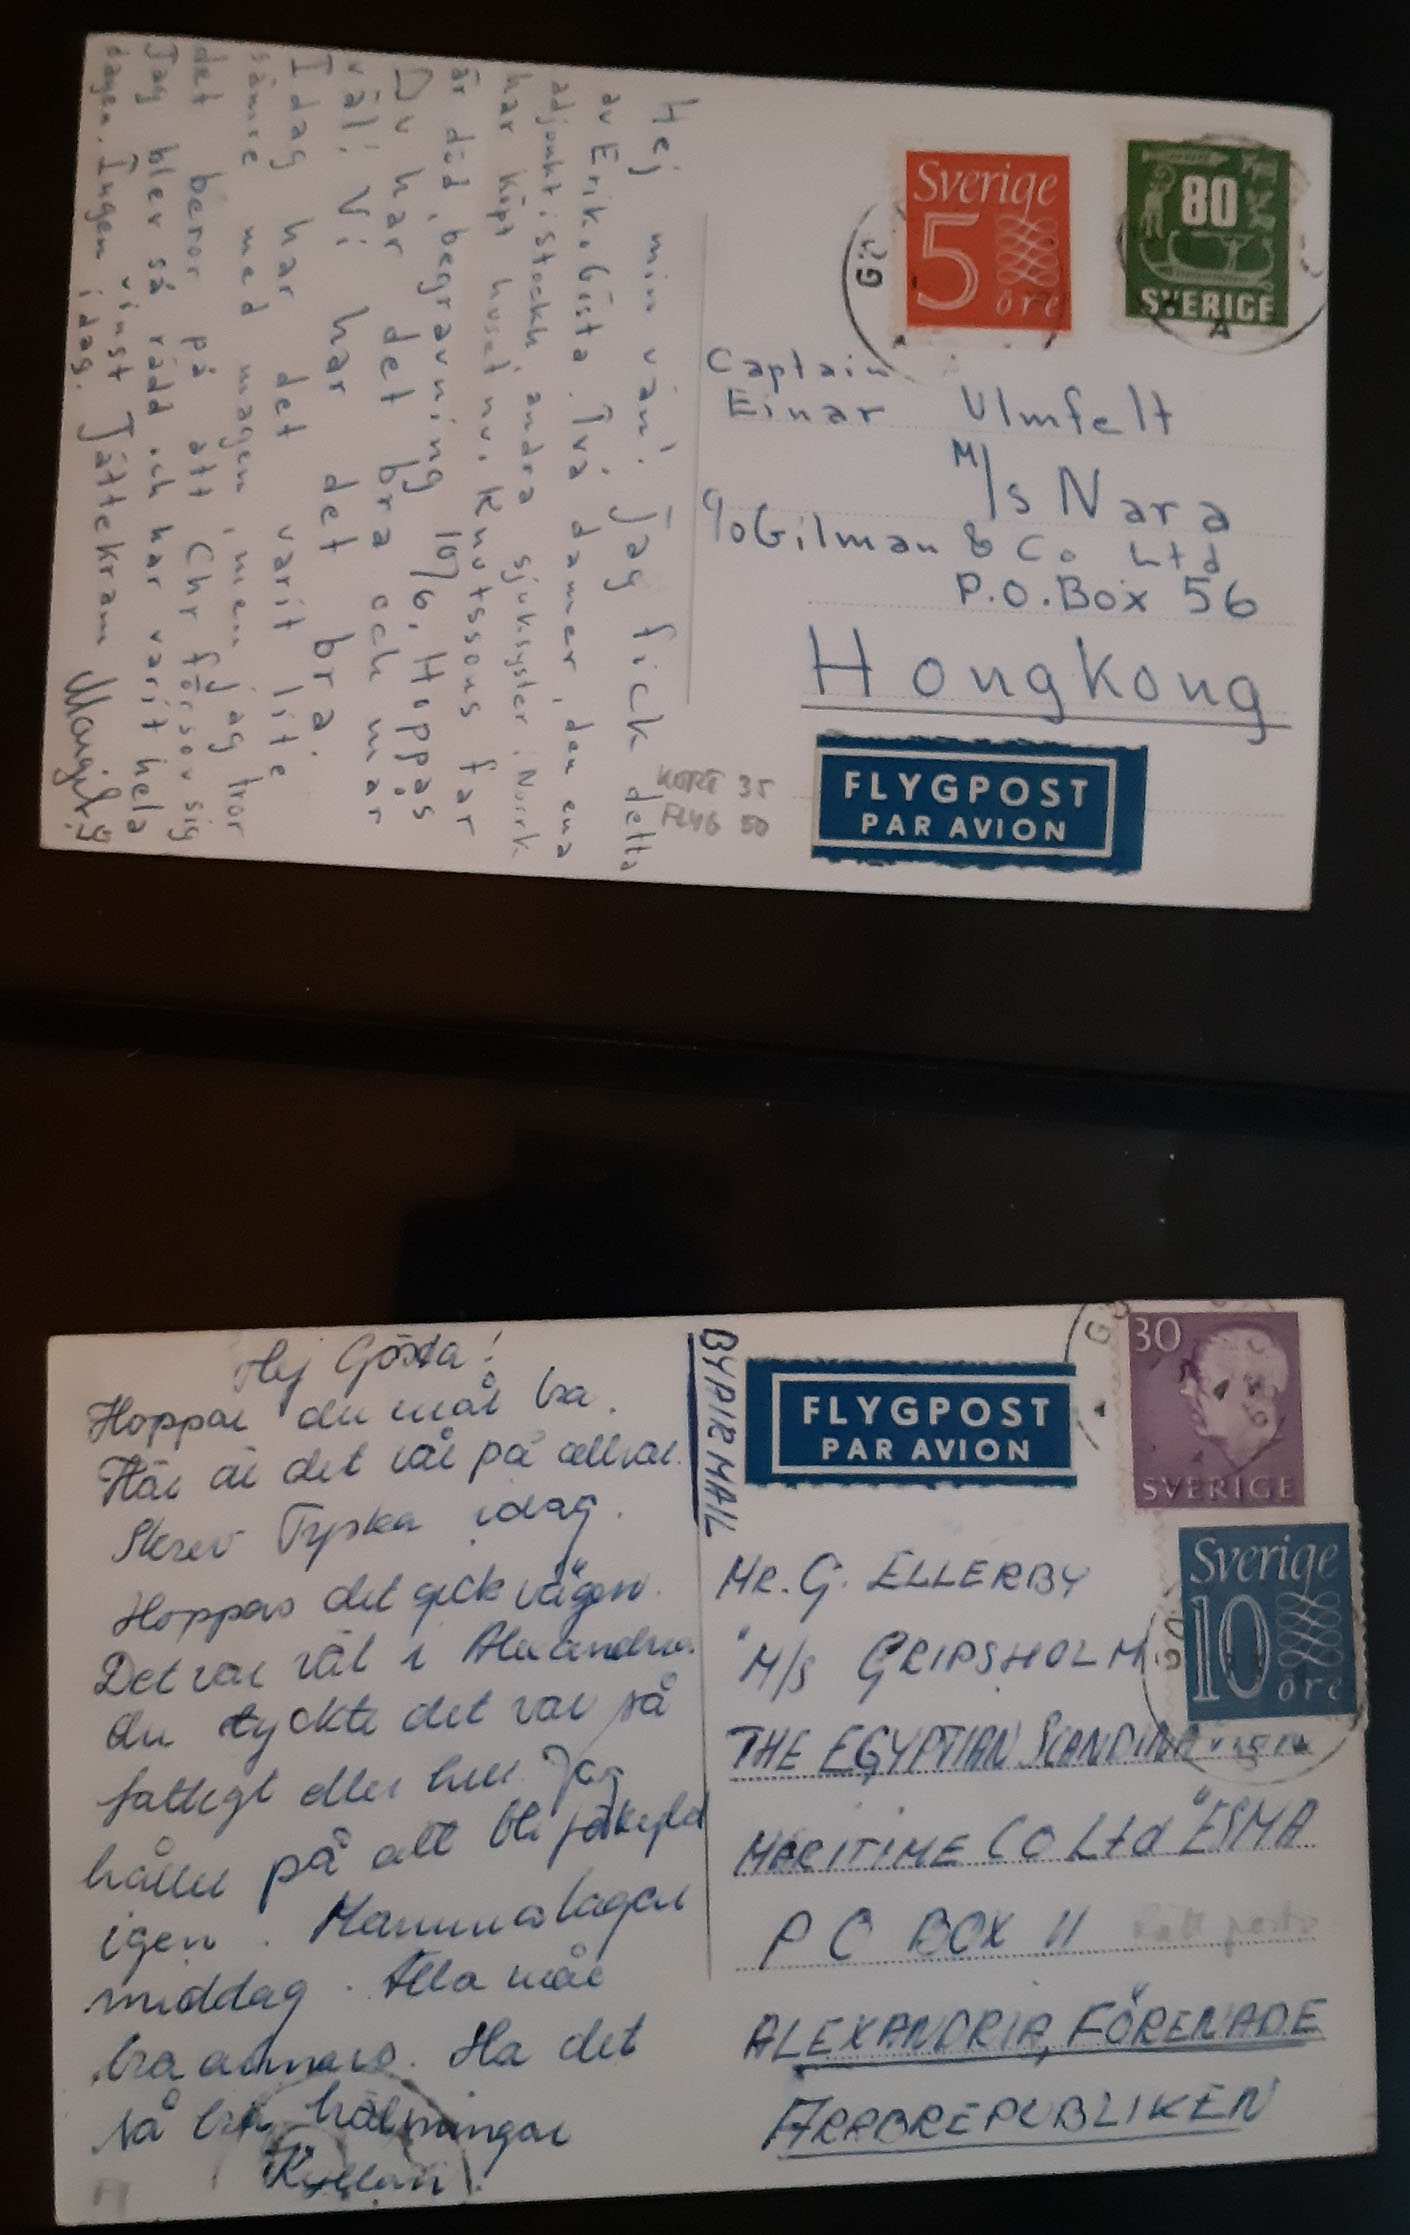 Hej min vän! Jag fick detta
av Erik. Gösta. Två damer, den ena
adjunkt i Stockh, andra sjuksyster i Norrk
har köpt huset nu. Knutssons far
är död, begravning 10/6. Hoppas
Du har det bra och mår
väl! Vi har det bra.
Idag har det varit lite
sämre med magen, men jag tror
det beror på att Chr försov sig
Jag blev så rädd och har varit hela
dagen. Ingen vinst idag. Jättekram Margit
Sverige
5
öre
80
SVERIGE
GÖ
A
Captain
Einar Ulmfelt
M/s Nara
c/o Gilman & Co Ltd
P.O.Box 56
Hongkong
KORT 35
FLYG 50
FLYGPOST
PAR AVION
Hej Gösta!
Hoppas du mår bra.
Här är det vår på allvar.
Skrev Tyska idag.
Hoppas det gick vägen.
Det var väl i Alexandria
du tyckte det var så
fattigt eller hur. Jag
håller på att bli förkyld
igen. Mamma lagar
middag. Alla mår
bra annars. Ha det
så bra hälsningar
BY AIR MAIL
FLYGPOST
PAR AVION
30
SVERIGE
Sverige
10
öre
MR. G. ELLERBY
"M/S GRIPSHOLM
THE EGYPTIAN SCANDINAVIAN
MARITIME CO Ltd "ESMA
P O BOX 11
Rätt porto
ALEXANDRIA, FÖRENADE
ARABREPUBLIKEN